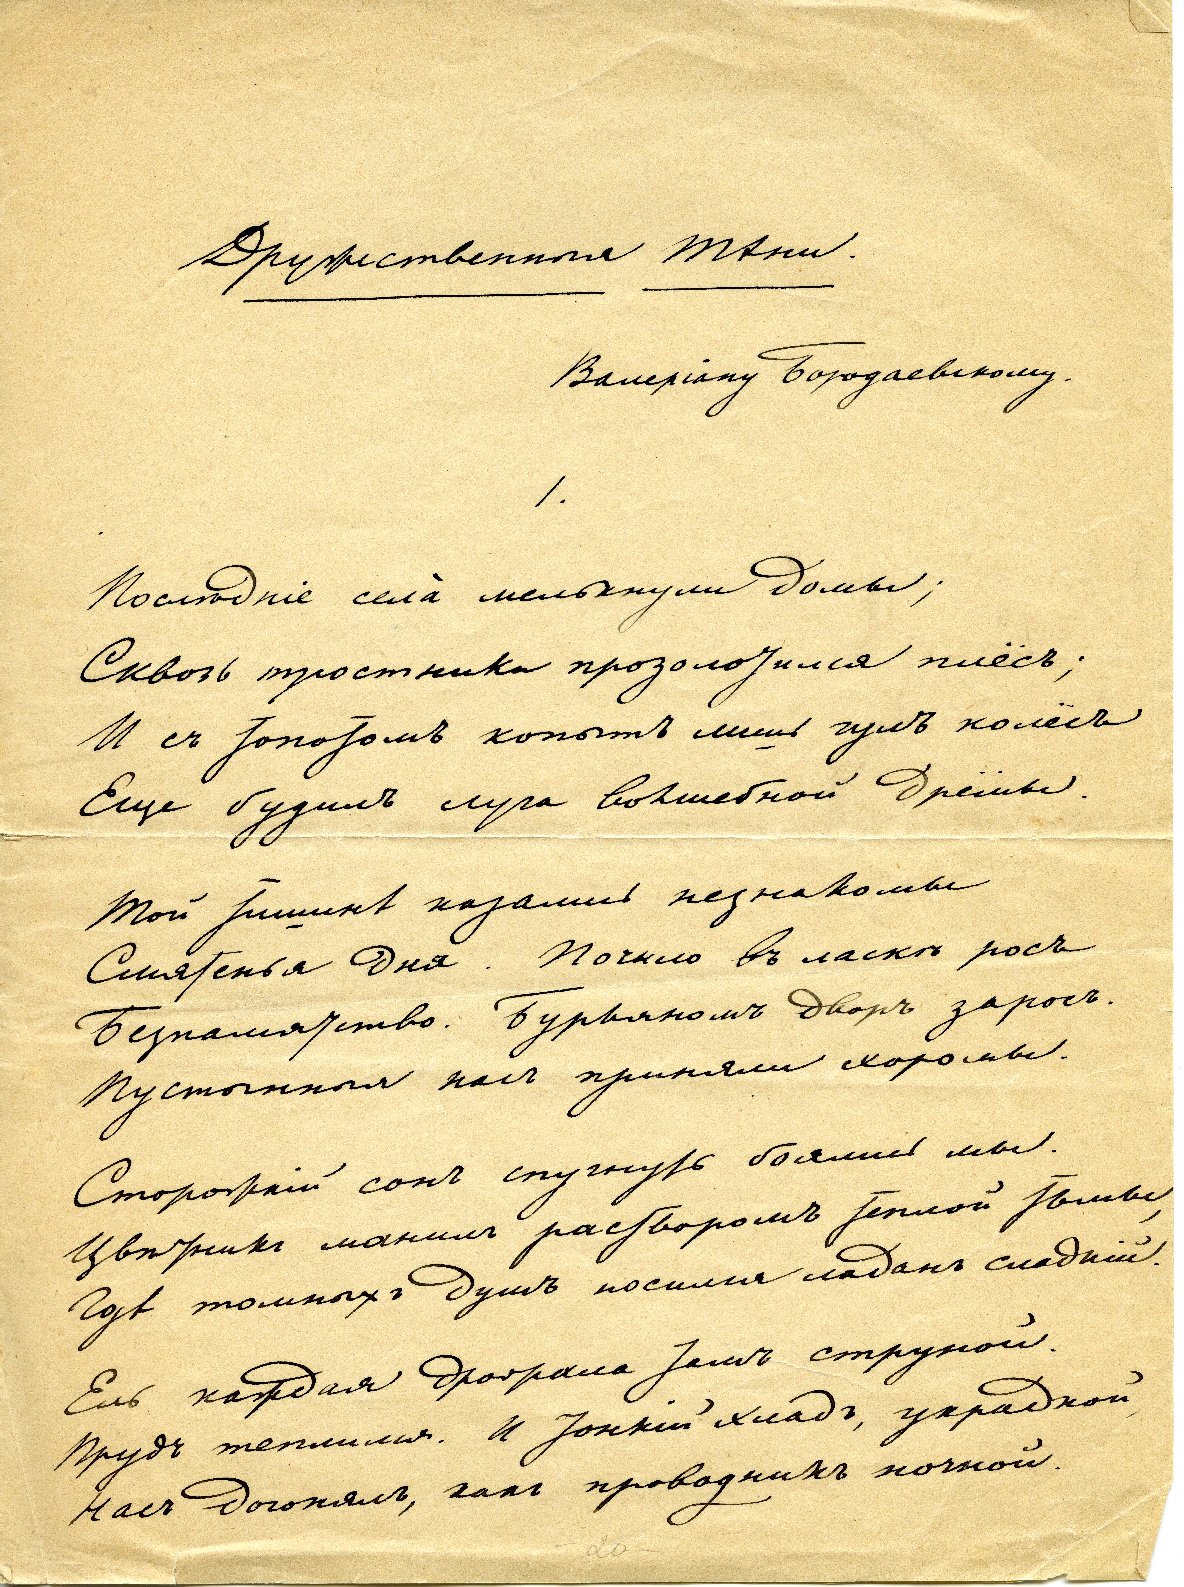 Дружественныя тѣни.
Валеріану Бородаевскому.
1.
Послѣднiе села̀ мелькнули домы;
Сквозь тростники прозолотился плёсъ;
И съ топотомъ копытъ лишь гулъ колёсъ
Еще будилъ луга волшебной дрёмы.
Той тишинѣ казались незнакомы
Смятенья дня. Почило въ ласкѣ росъ
Безпамятство. Бурьяномъ дворъ заросъ.
Пустынныя насъ приняли хоромы.
Сторожкій сонъ спугнуть боялись мы.
Цвѣтникъ манилъ растворомъ теплой тьмы,
Гдѣ томныхъ душъ носился ладанъ сладкій.
Ель каждая дрожала тамъ струной.
Прудъ теплился. И тонкій хладъ, украдкой,
Насъ догонялъ, какъ проводникъ ночной.
20